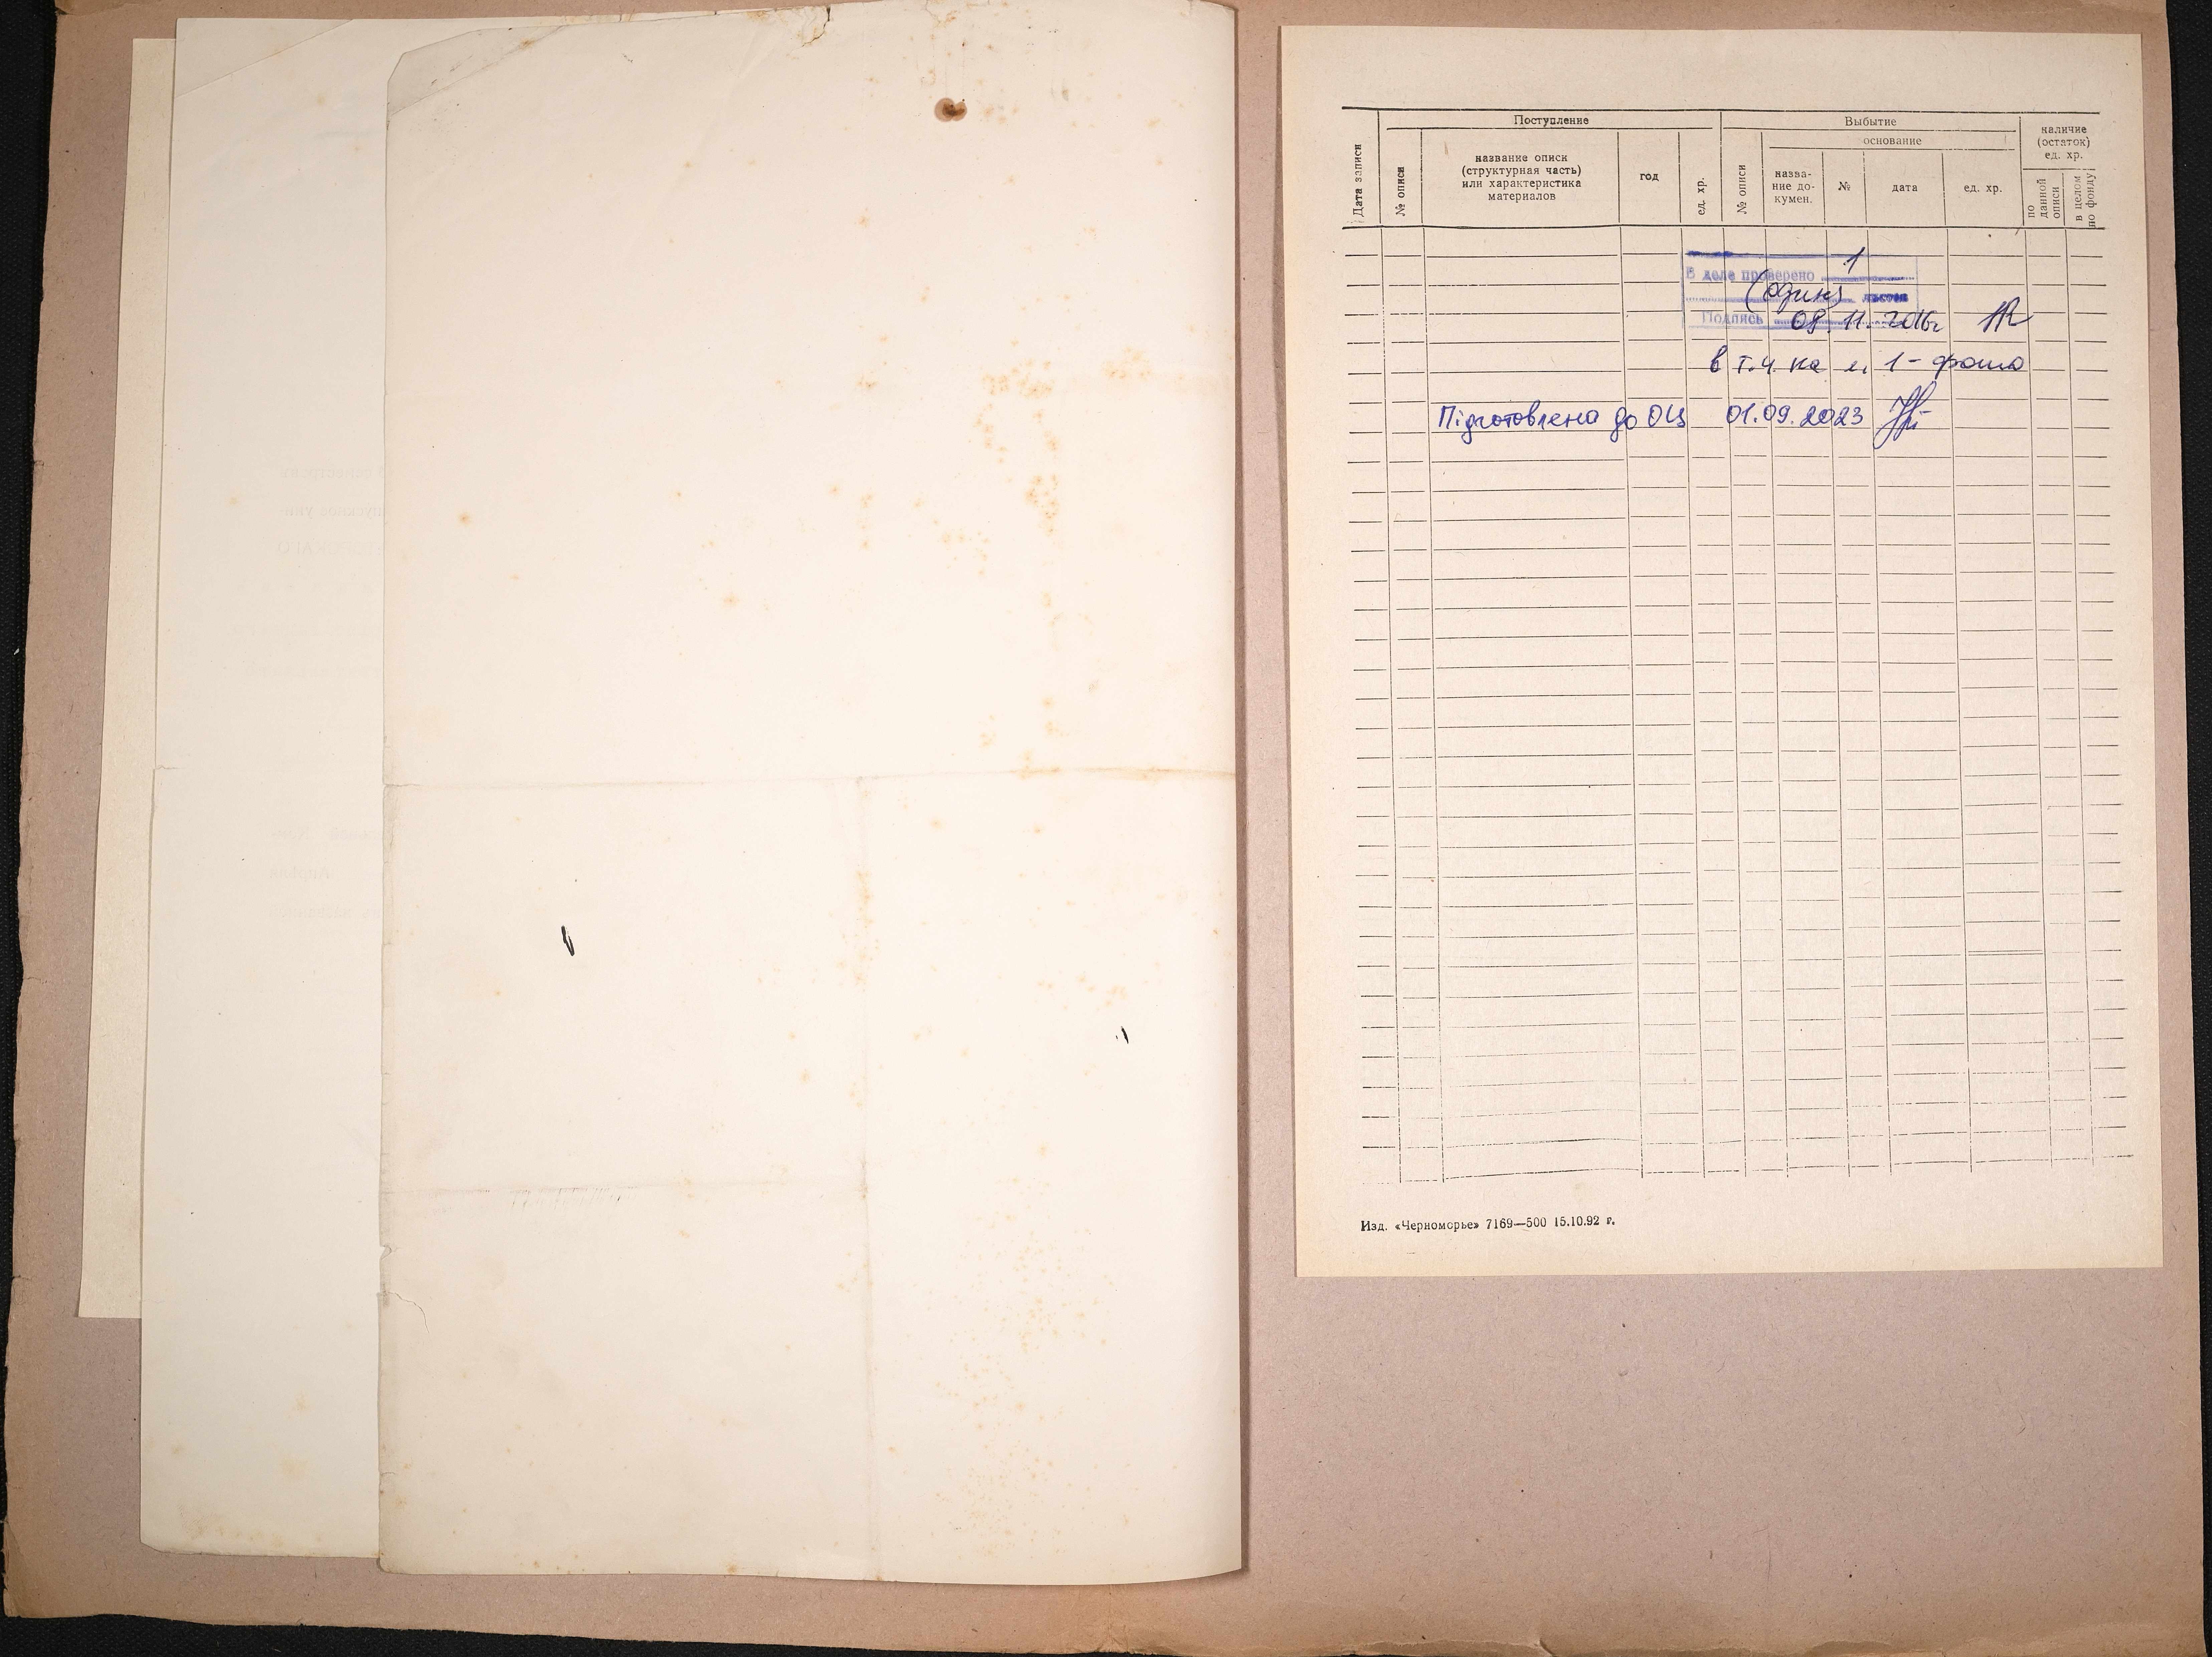 Поступление
Выбытие
наличие
(остаток)
ед. хр.
основание
Дата записи
№ описи
название описи
(структурная часть)
или характеристика
материалов
год
ед. хр.
№ описи
назва-
ние до-
кумен.
№
дата
ед. хр.
по
данной
описи
в целом
по фонду
В деле проверено 1
(один) листов
Подпись 08.11.2016г
в т.ч. на л. 1 - фото
Підготовлена до ОЦ 01.09.2023
Изд. «Черноморье» 7169—500 15.10.92 г.